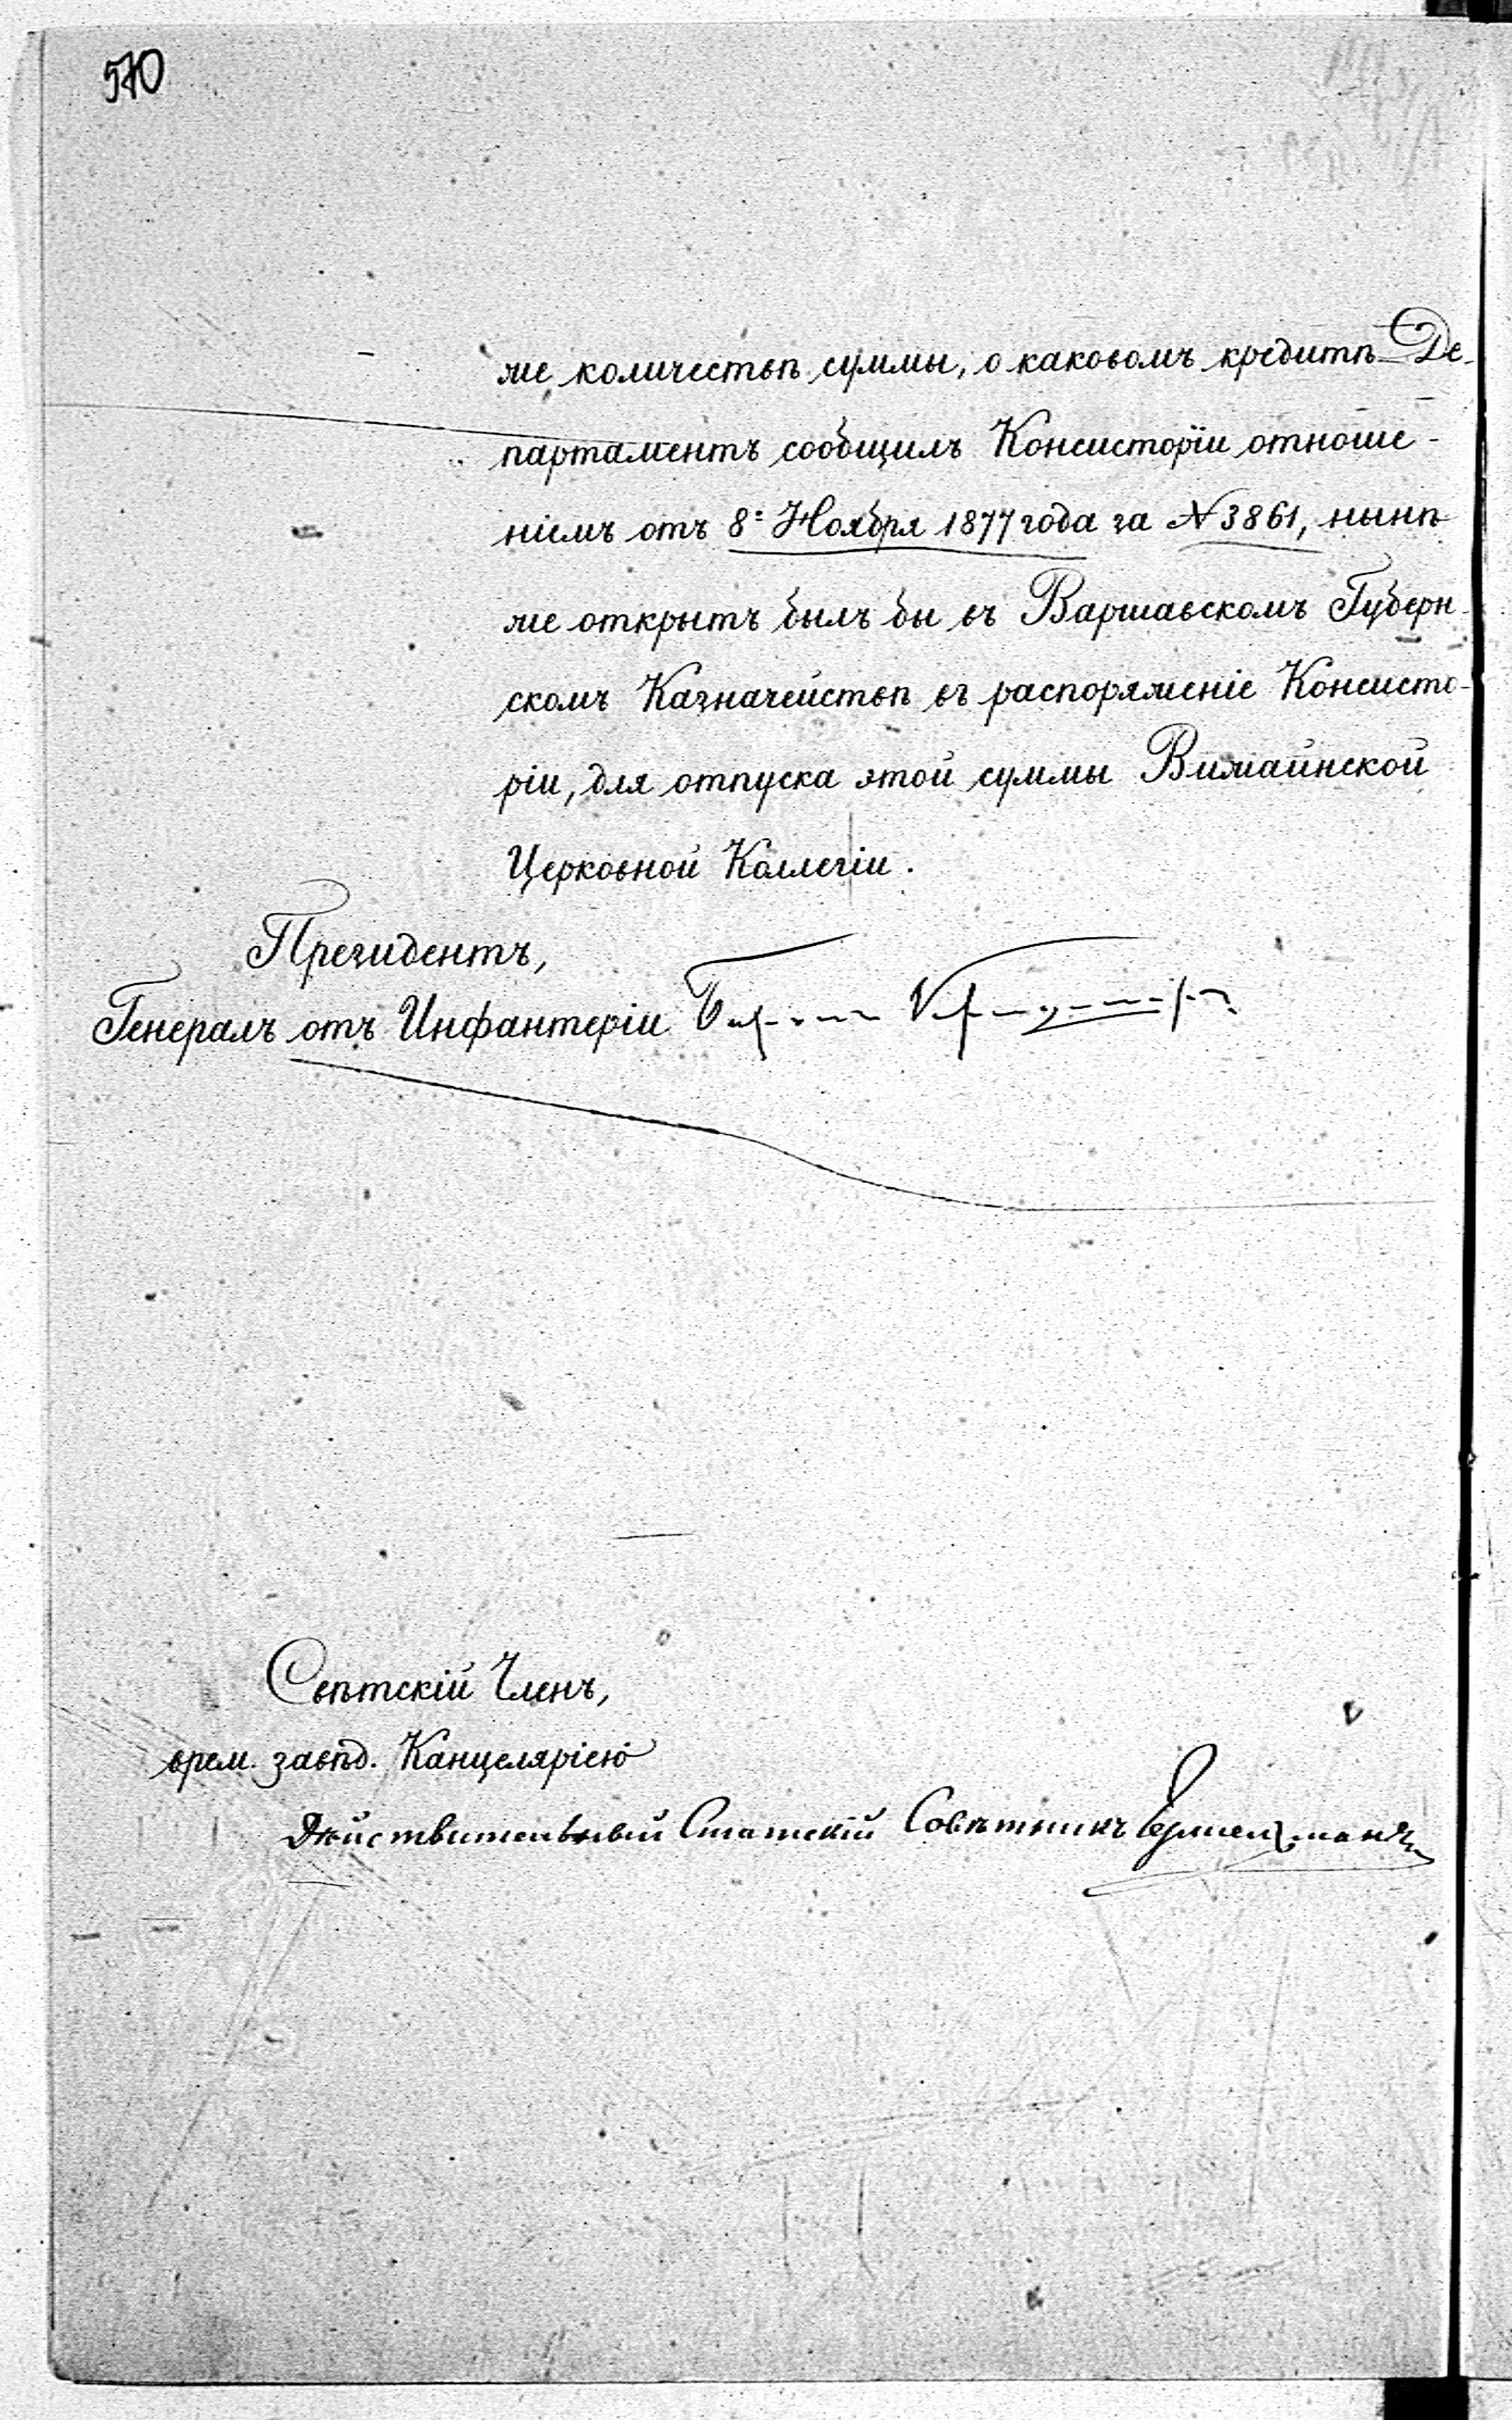 570
же количествѣ суммы, о каковомъ кредитѣ Де-
партаментъ сообщилъ Консисторіи отноше-
ніемъ отъ 8: Ноября 1877 года за № 3861, нынѣ
же открытъ былъ бы въ Варшавскомъ Губерн-
скомъ Казначействѣ въ распоряженіе Консисто-
ріи, для отпуска этой суммы Вижайнской
Церковной Коллегіи.
Президентъ,
Генералъ отъ Инфантеріи Баронъ
Свѣтскій Членъ,
врем. завѣд. Канцеляріею
Дѣйствительный Статскій Совѣтникъ